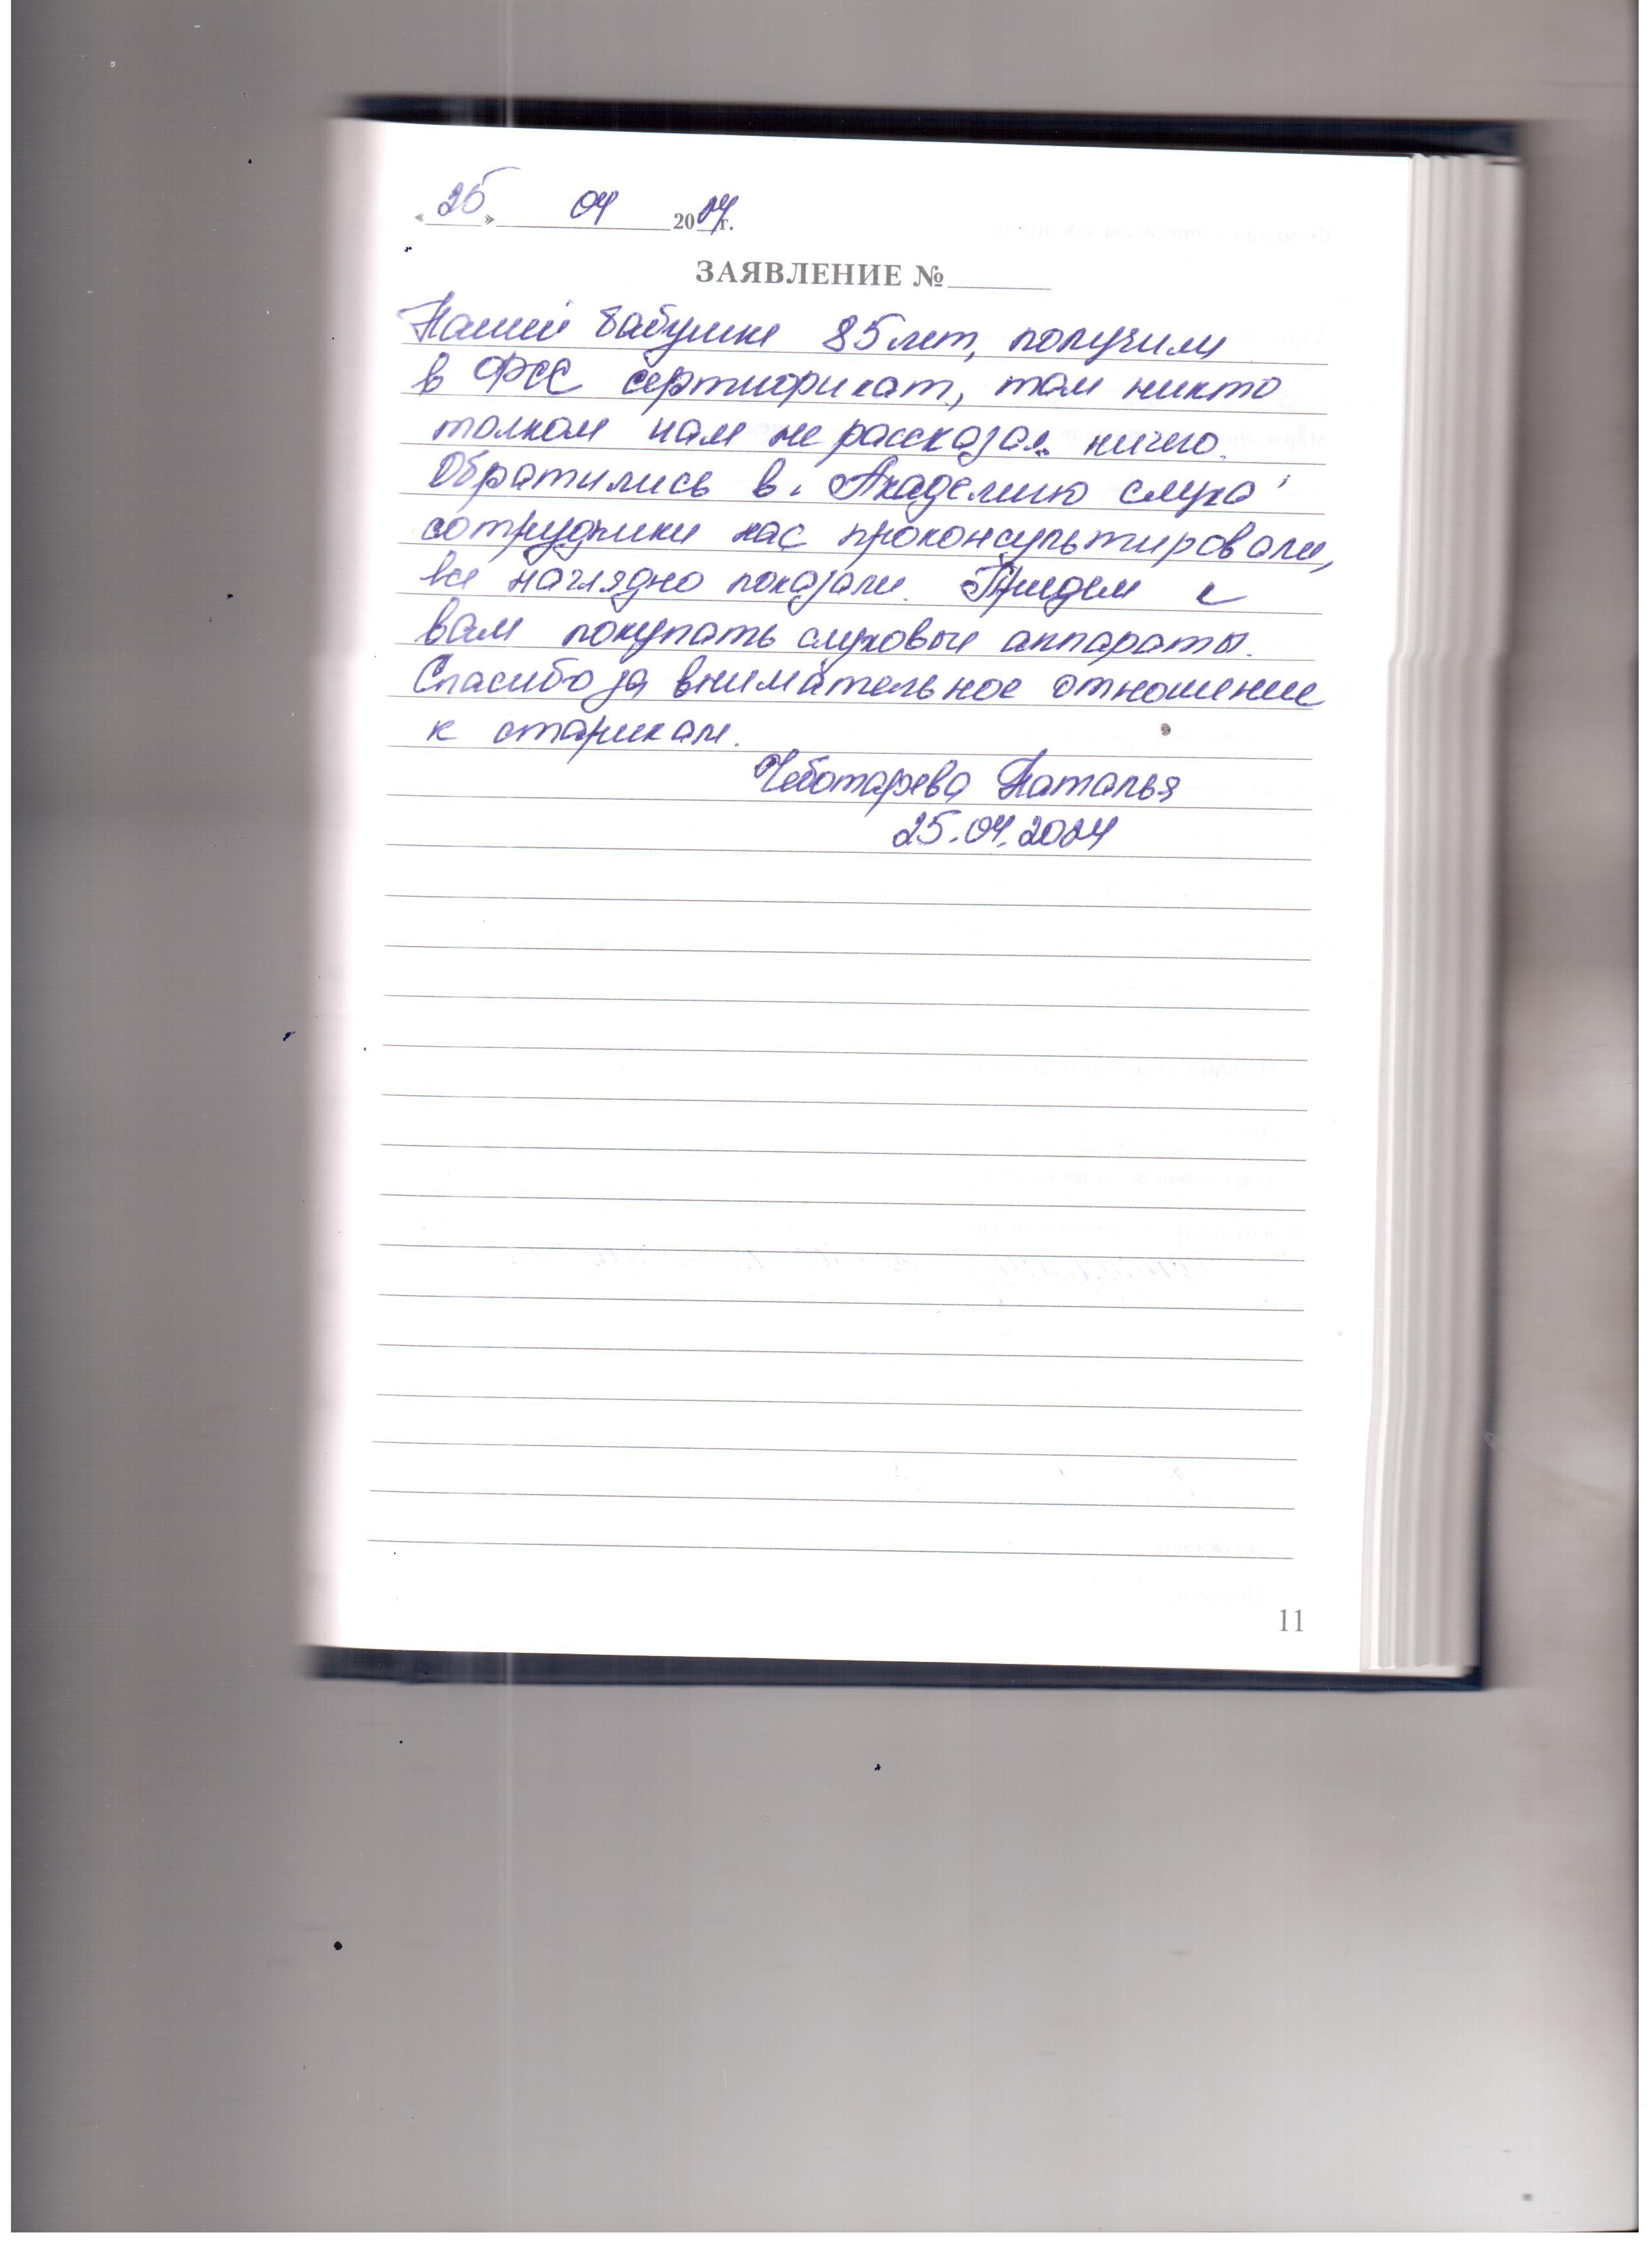 «25» 04 2024г.
ЗАЯВЛЕНИЕ №
Нашей бабушке 85 лет, получили
в ФСС сертификат, там никто
толком нам не рассказал ничего.
Обратились в "Академию слуха"
сотрудники нас проконсультировали,
все наглядно показали. Придем к
вам покупать слуховые аппараты.
Спасибо за внимательное отношение
к старикам.
Чеботарева Наталья
25.04.2024
11